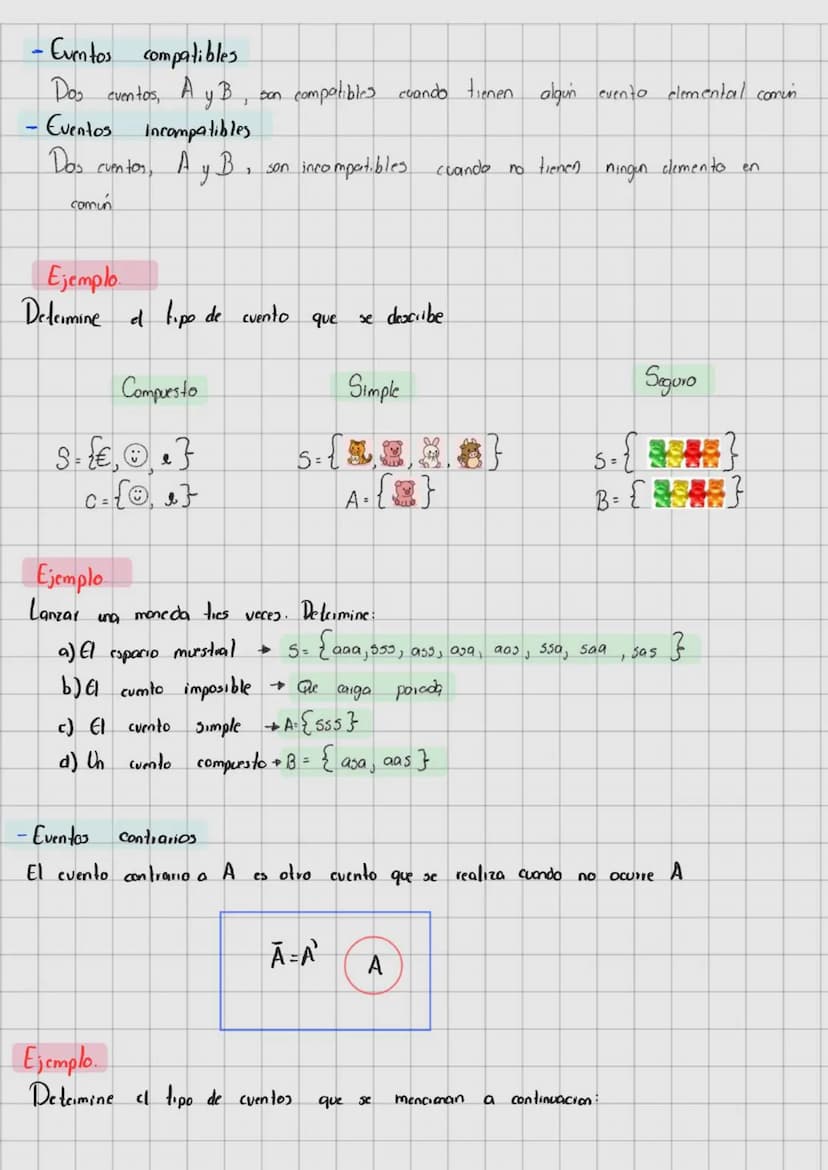 - Eventos compatibles
Dos eventos, A y B, son compatibles cuando tienen algún evento elemental común
- Eventos incompatibles
Dos eventos, A y B, son incompatibles cuando no tienen ningun elemento en
común
Ejemplo.
Determine el tipo de evento que se describe
Compuesto Simple Seguro
S={€, ☺, e} S={ , , , } S={ }
C={☺, e} A={ } B={ }
Ejemplo
Lanzar una moneda tres veces. Determine:
a) El espacio muestral → S={aaa, sss, ass, asa, aas, ssa, saa, sas}
b) El evento imposible → Que caiga parada
c) El evento simple → A={sss}
d) Un evento compuesto → B = {asa, aas}
- Eventos contrarios
El evento contrario a A es otro evento que se realiza cuando no ocurre A
Ā=A' A
Ejemplo.
Determine el tipo de eventos que se mencionan a continuacion: